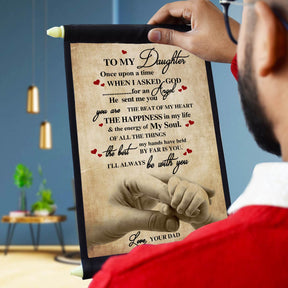 TO MY Daughter
Once upon a time
WHEN I ASKED GOD
for an Angel
He sent me you
you are THE BEAT OF MY HEART
THE HAPPINESS in my life
& the energy of My Soul.
OF ALL THE THINGS
my hands have held
the best BY FAR IS YOU.
I'LL ALWAYS be with you
Love, YOUR DAD